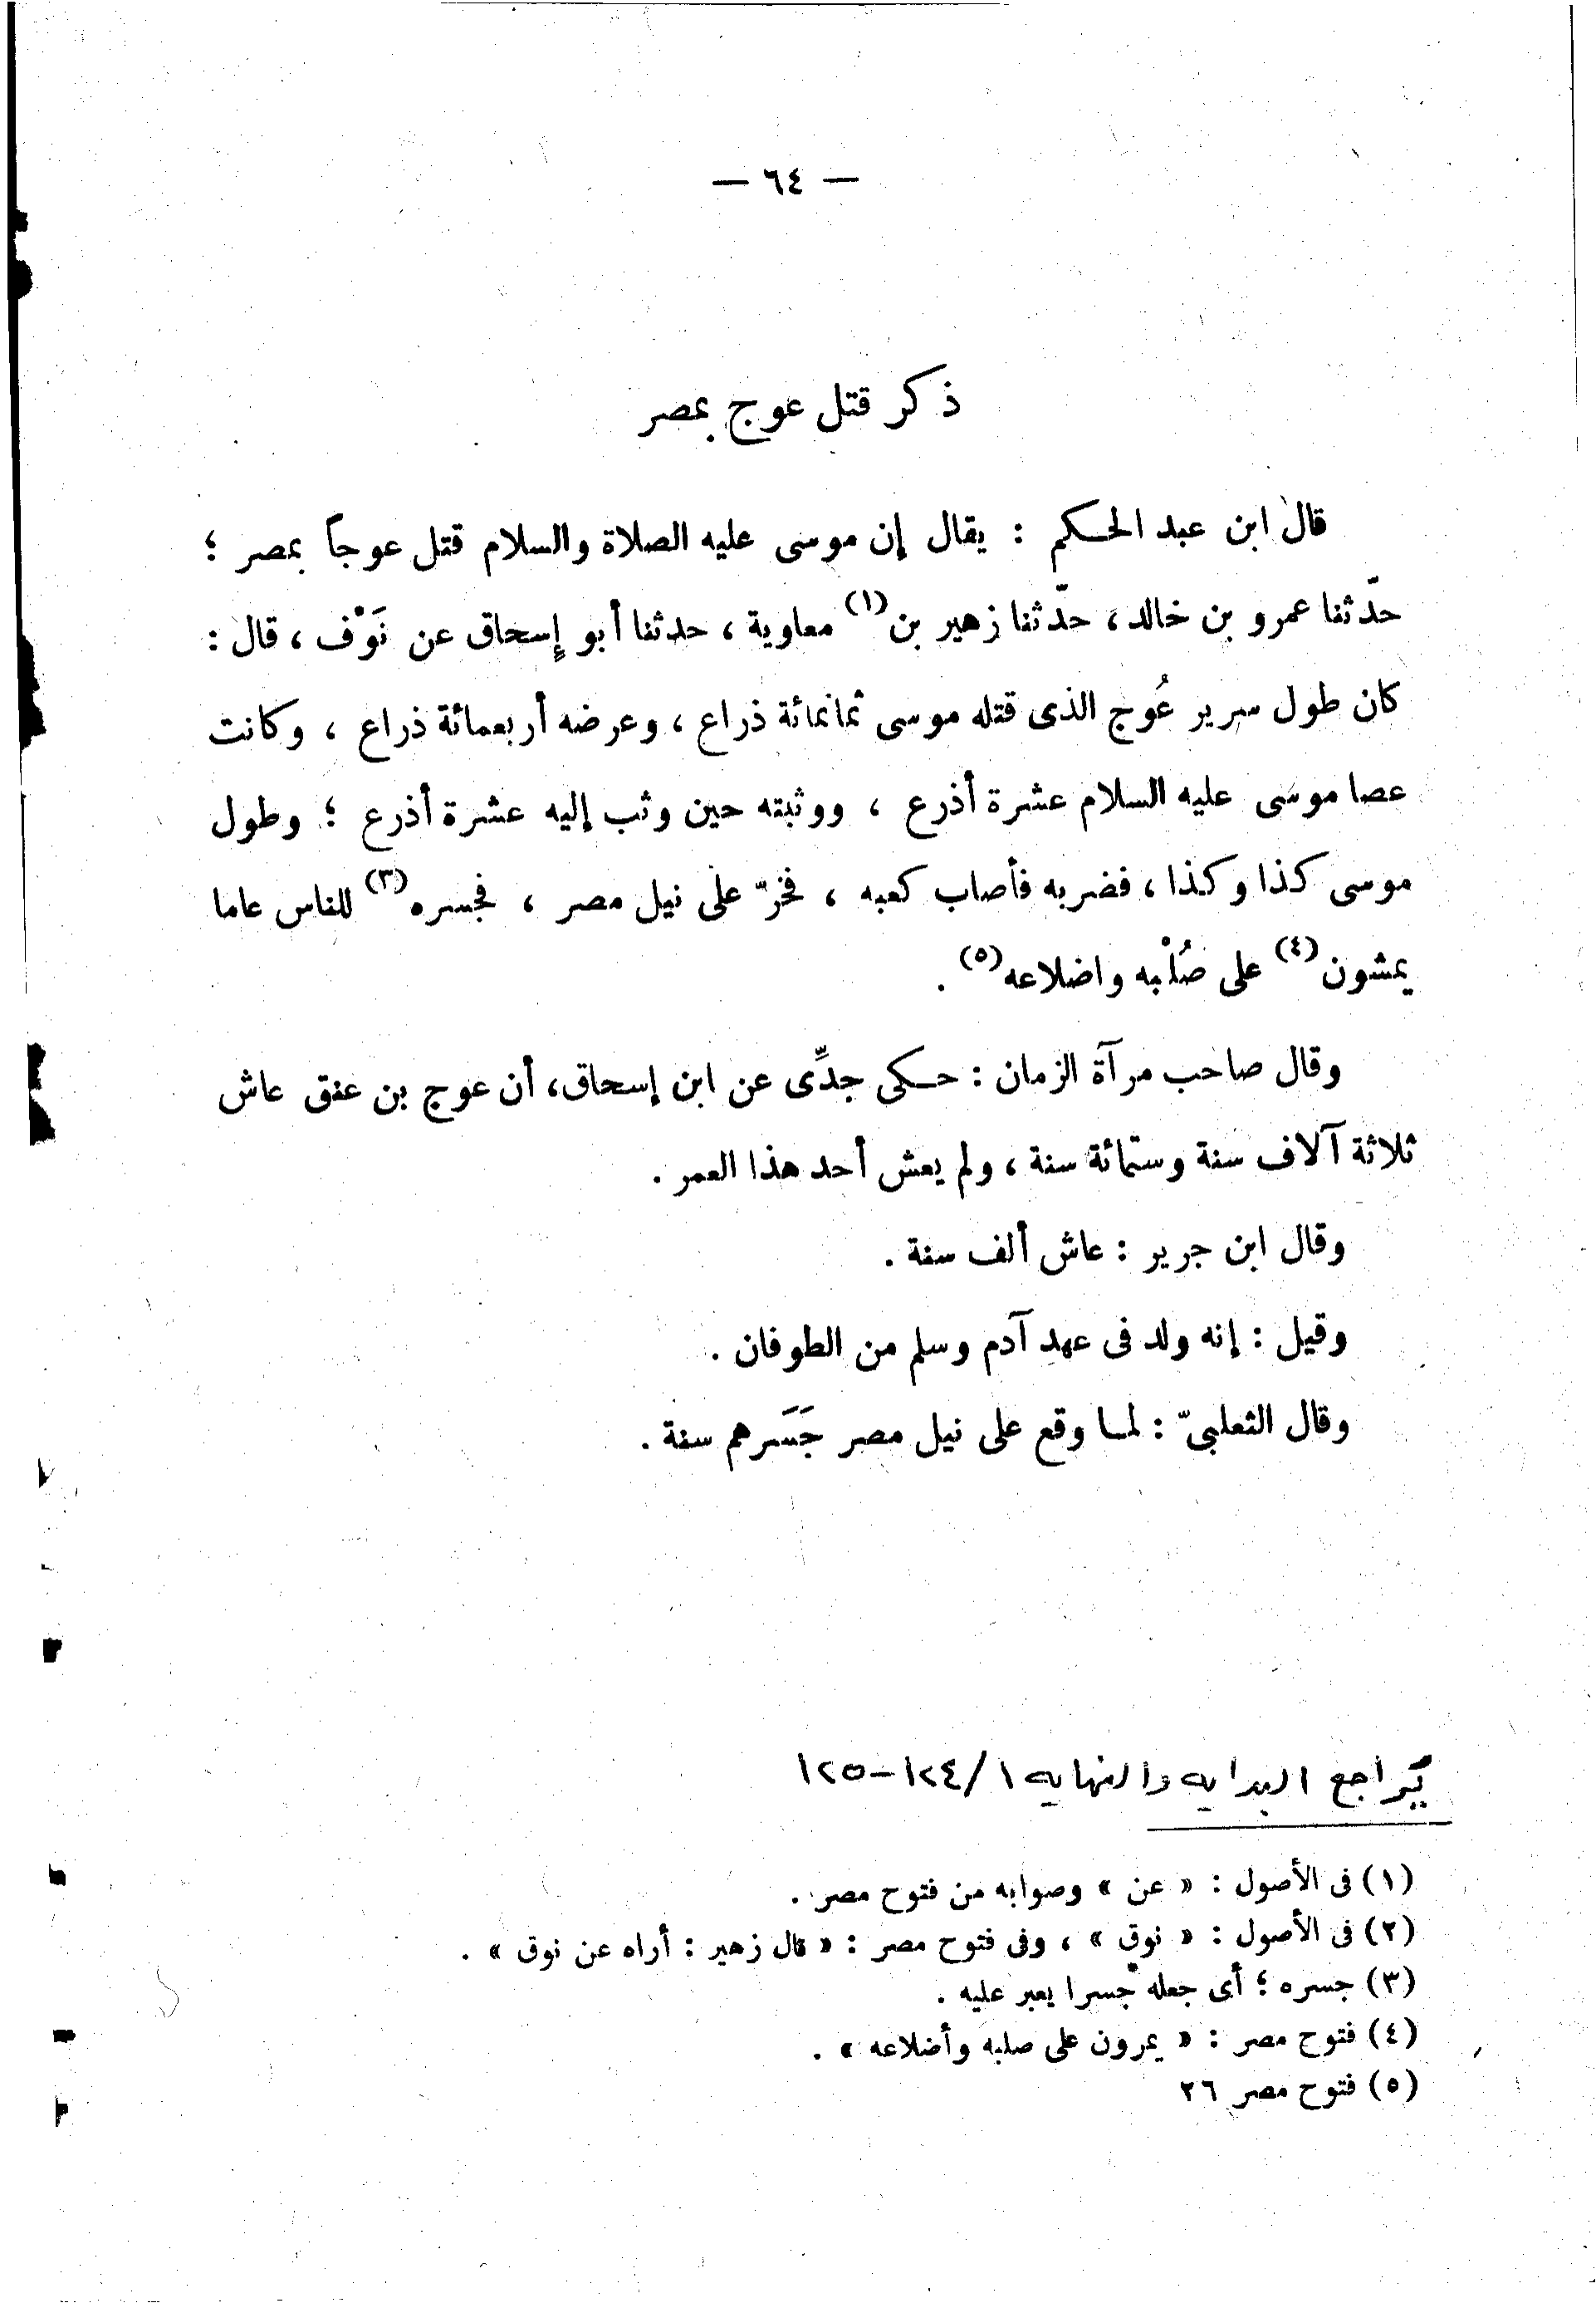 — ٦٤ —
ذكر قتل عوج بمصر
قال ابن عبد الحكم : يقال إن موسى عليه الصلاة والسلام قتل عوجاً بمصر ؛
حدّثنا عمرو بن خالد، حدّثنا زهير بن (١) معاوية ، حدثنا أبو إسحاق عن نَوْف ، قال :
كان طول سرير عُوج الذى قتله موسى ثمانمائة ذراع ، وعرضه أربعمائة ذراع ، وكانت
عصا موسى عليه السلام عشرة أذرع ، ووثبته حين وثب إليه عشرة أذرع ؛ وطول
موسى كذا وكذا ، فضربه فأصاب كعبه ، فخرّ على نيل مصر ، فجسره (٣) للناس عاما
يمشون (٤) على صُلْبه واضلاعه (٥) .
وقال صاحب مرآة الزمان : حكى جدِّى عن ابن إسحاق، أن عوج بن عنق عاش
ثلاثة آلاف سنة وستمائة سنة ، ولم يعش أحد هذا العمر .
وقال ابن جرير : عاش ألف سنة .
وقيل : إنه ولد فى عهد آدم وسلم من الطوفان .
وقال الثعلبىّ : لما وقع على نيل مصر جَسَرهم سنة .
يُراجع البدايه والنهايه ١/١٢٤-١٢٥
(١) فى الأصول : « عن » وصوابه من فتوح مصر .
(٢) فى الأصول : « نوق » ، وفى فتوح مصر : « قال زهير : أراه عن نوق » .
(٣) جسره ؛ أى جعله جسرا يعبر عليه .
(٤) فتوح مصر : « يمرون على صلبه وأضلاعه » .
(٥) فتوح مصر ٢٦